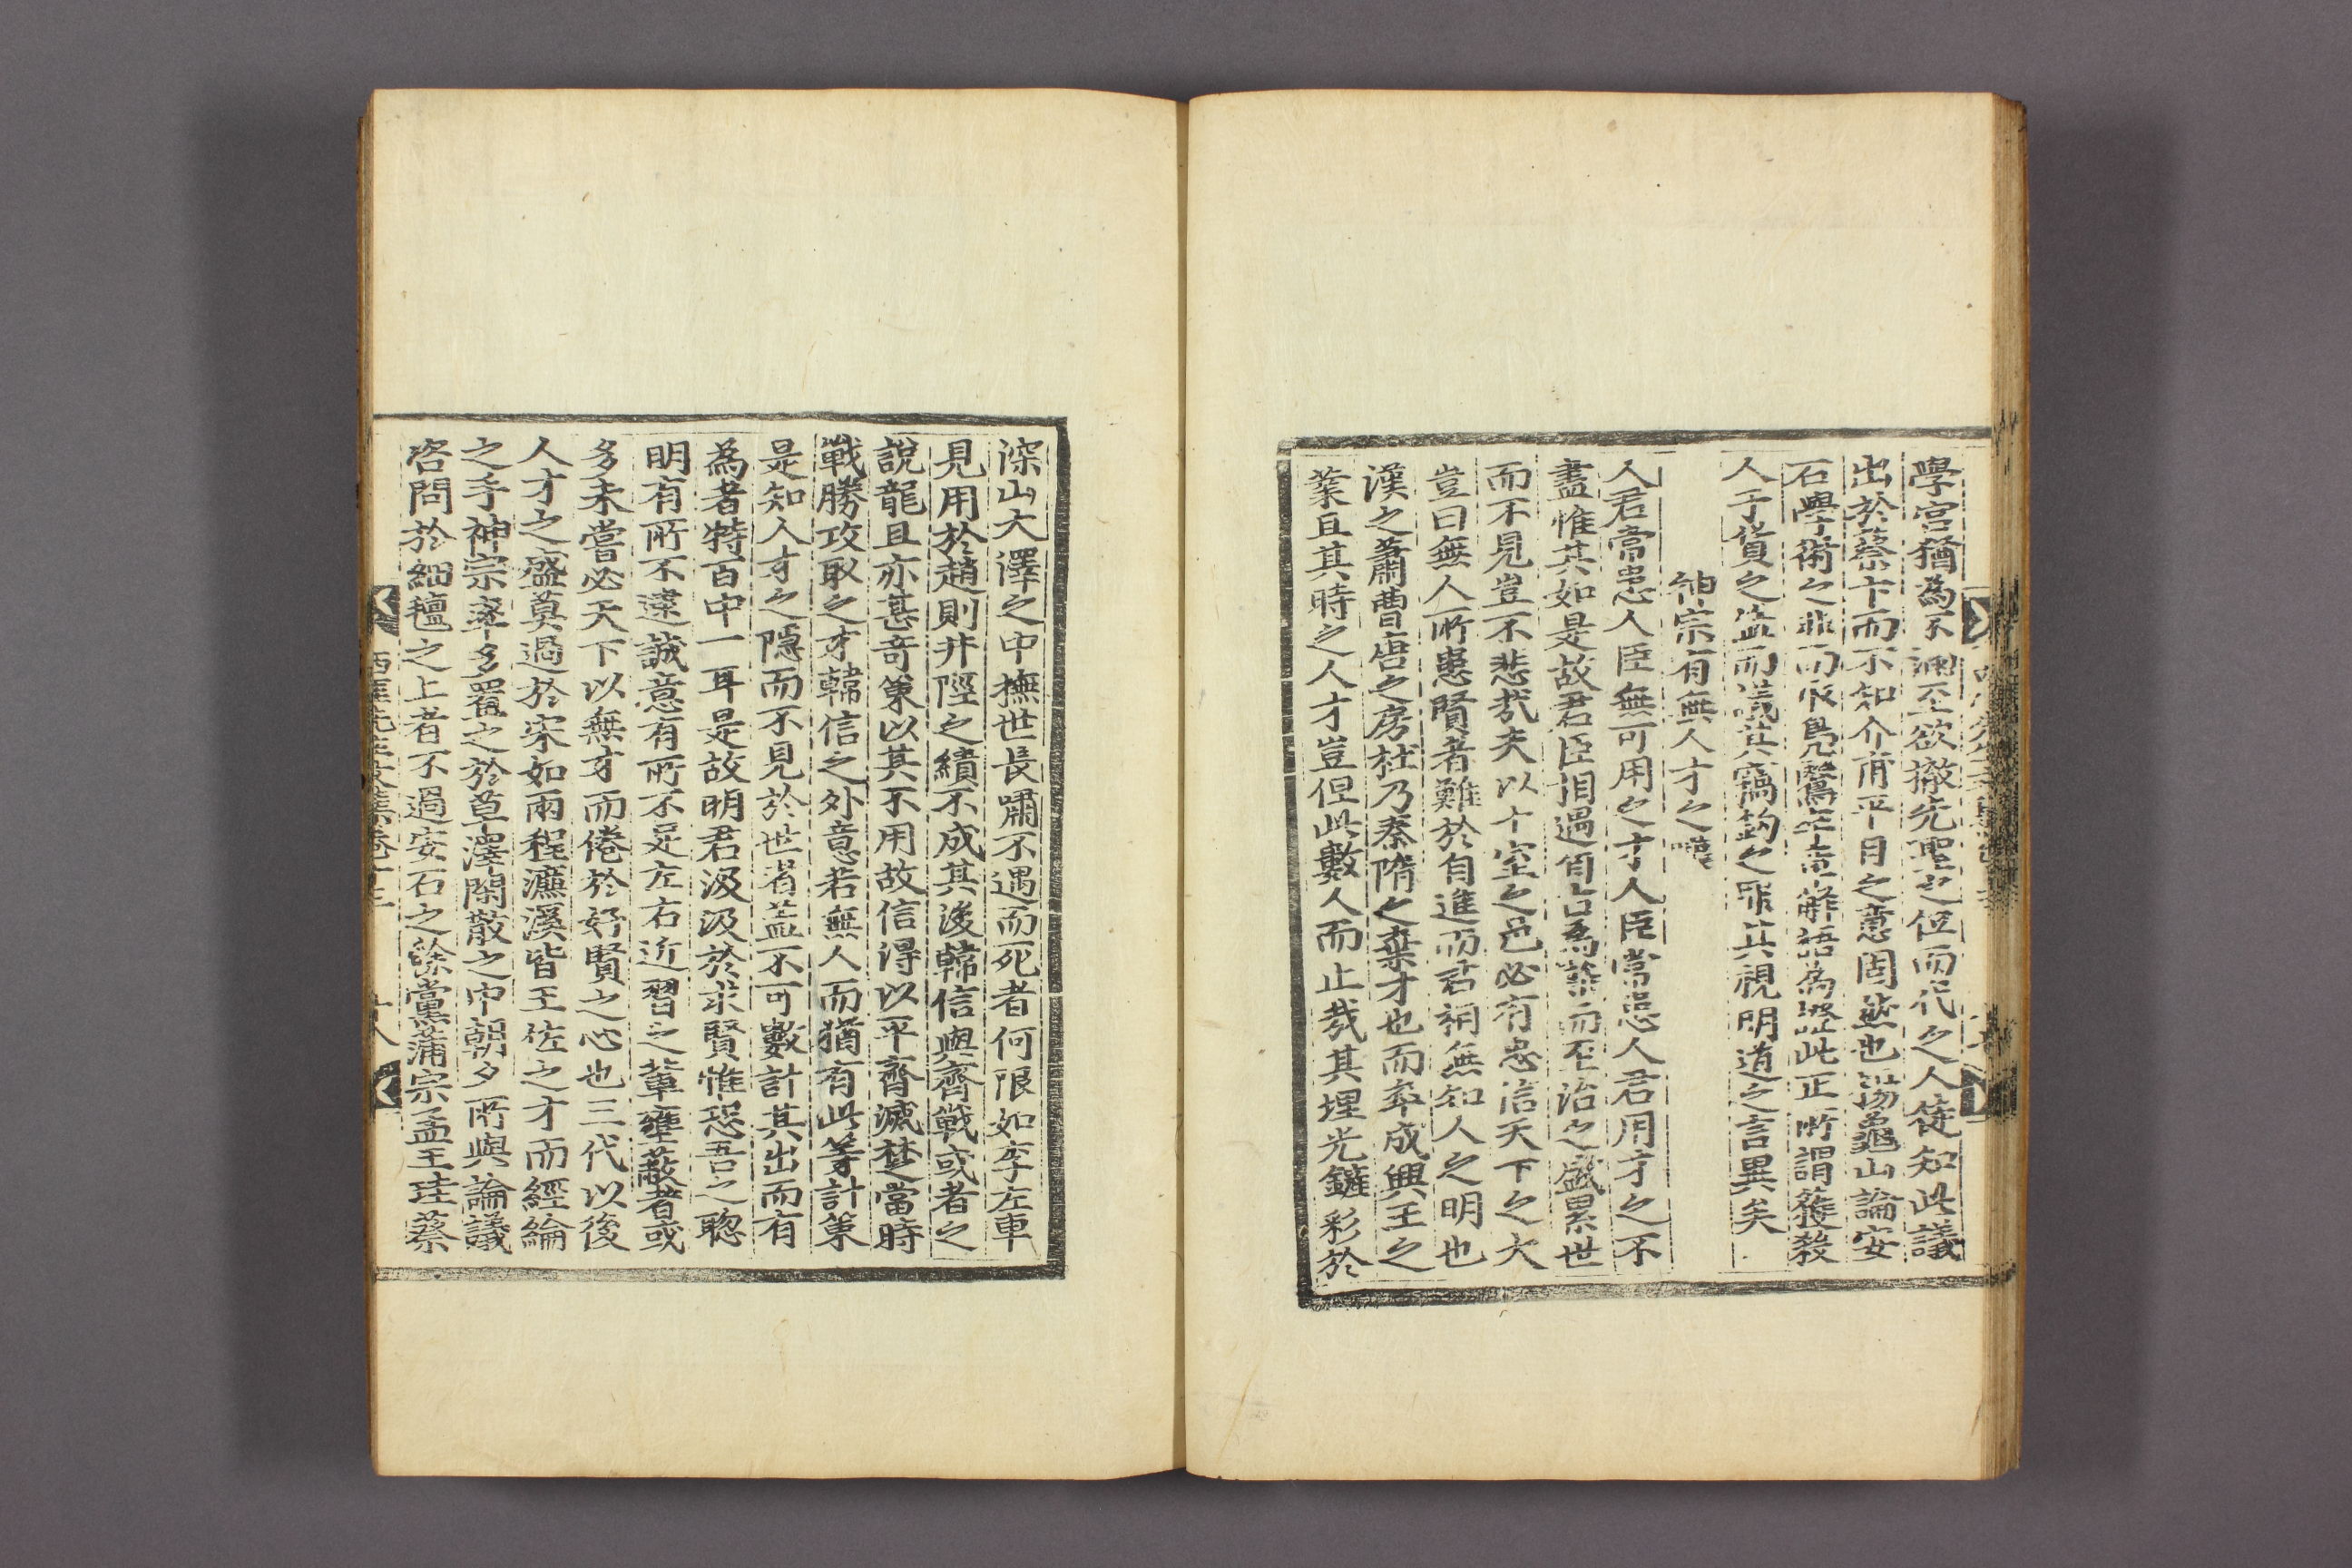 學宮猶為不滿至欲撤先聖之位而代之人徒知此議
出於蔡卞而不知介甫平日之意固然也楊龜山論安
石學術之非而以鳧鷖守章解語為證此正所謂獲殺
人于貨之盜而議其竊鉤之罪其視明道之言異矣
神宗有無人才之嘆
人君常患人臣無可用之才人臣常患人君用才之不
盡惟其如是故君臣相遇自古為難而至治之盛累世
而不見豈不悲哉夫以十室之邑必有忠信天下之大
豈曰無人所患賢者難於自進而君祠無知人之明也
漢之蕭曹唐之房杜乃秦隋之棄才也而卒成興王之
業且其時之人才豈但此數人而止哉其埋光鏟彩於
深山大澤之中撫世長嘯不遇而死者何限如李左車
見用於趙則井陘之績不成其後韓信與齊戰或者之
說龍且亦甚奇策以其不用故信得以平齊滅楚當時
戰勝攻取之才韓信之外意若無人而猶有此等計策
是知人才之隱而不見於世者盖不可數計其出而有
為者特百中一耳是故明君汲汲於求賢惟恐吾之聰
明有所不逮誠意有所不足左右近習之輩壅蔽者或
多未嘗必天下以無才而倦於好賢之心也三代以後
人才之盛莫過於宋如兩程濂溪皆王佐之才而經綸
之手神宗率多置之於草澤閑散之中朝夕所與論議
咨問於細氊之上者不過安石之餘黨蒲宗孟王珪蔡
西厓先生文集卷之十
十八